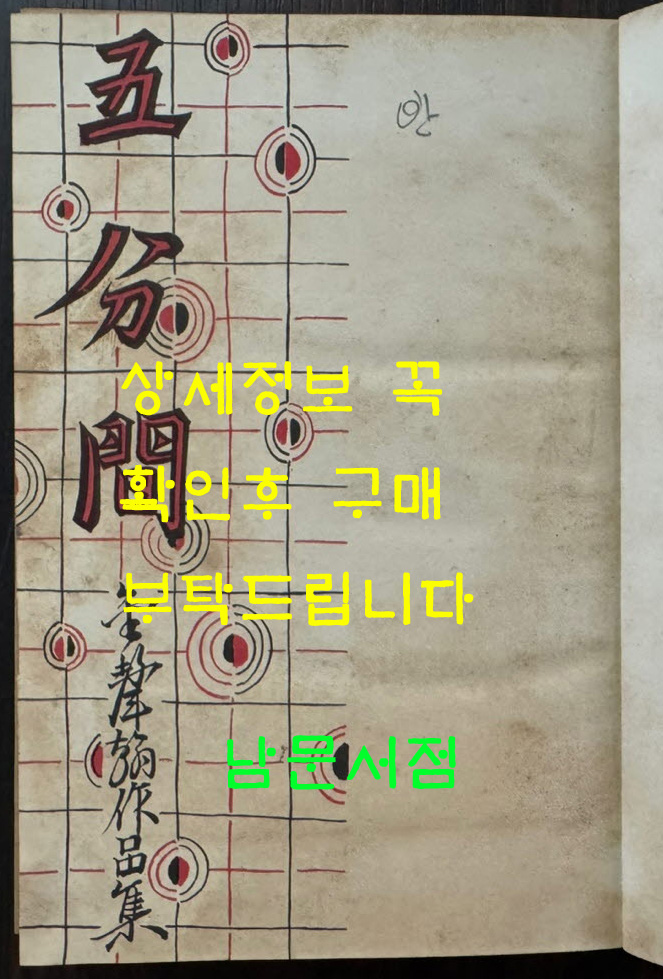 五分間
金聲翰作品集
상세정보 꼭
확인후 구매
부탁드립니다
남문서점